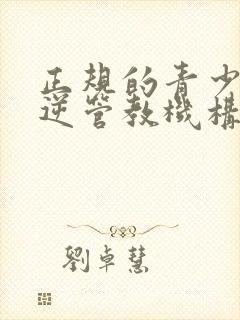 正規的青少
逆管教機構
劉卓慧